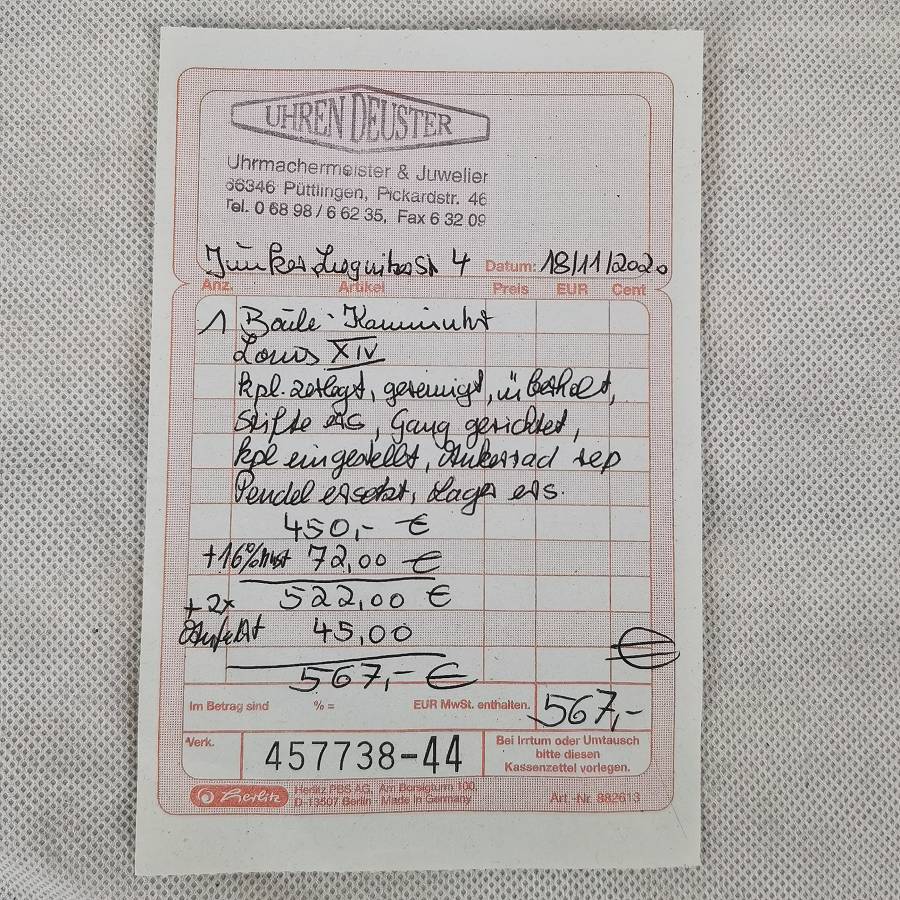 UHREN DEUSTER
Uhrmachermeister & Juwelier
66346 Püttlingen, Pickardstr. 46
Tel. 0 68 98 / 6 62 35, Fax 6 32 09
4 Datum: 18/11/2020
Anz. Artikel Preis EUR Cent
1 Boule-Kaminuhr
Louis XIV
kpl. zerlegt, gereinigt, überholt,
Stifte ers, Gang gerichtet,
kpl eingestellt, Ankerrad rep
Pendel ersetzt, Lager ers.
450,- €
+16% Mwst 72,00 €
522,00 €
+ 2x
Anfahrt 45,00
€
567,- €
Im Betrag sind % = EUR MwSt. enthalten. 567,-
Verk. 457738-44
Bei Irrtum oder Umtausch
bitte diesen
Kassenzettel vorlegen.
herlitz
Herlitz PBS AG, Am Borsigturm 100,
D-13507 Berlin - Made in Germany
Art.-Nr. 882613